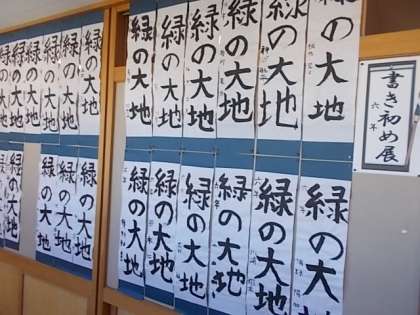 緑の大地
緑の大地
緑の大地
緑の大地
緑の大地
緑の大地
緑の大地
緑の大地
緑の大地
緑の大地
緑の大地
緑の大地
書き初め展
六年
緑の大地
緑の大地
緑の大地
緑の大地
緑の大地
緑の大地
緑の大地
緑の大地
緑の大地
緑の大地